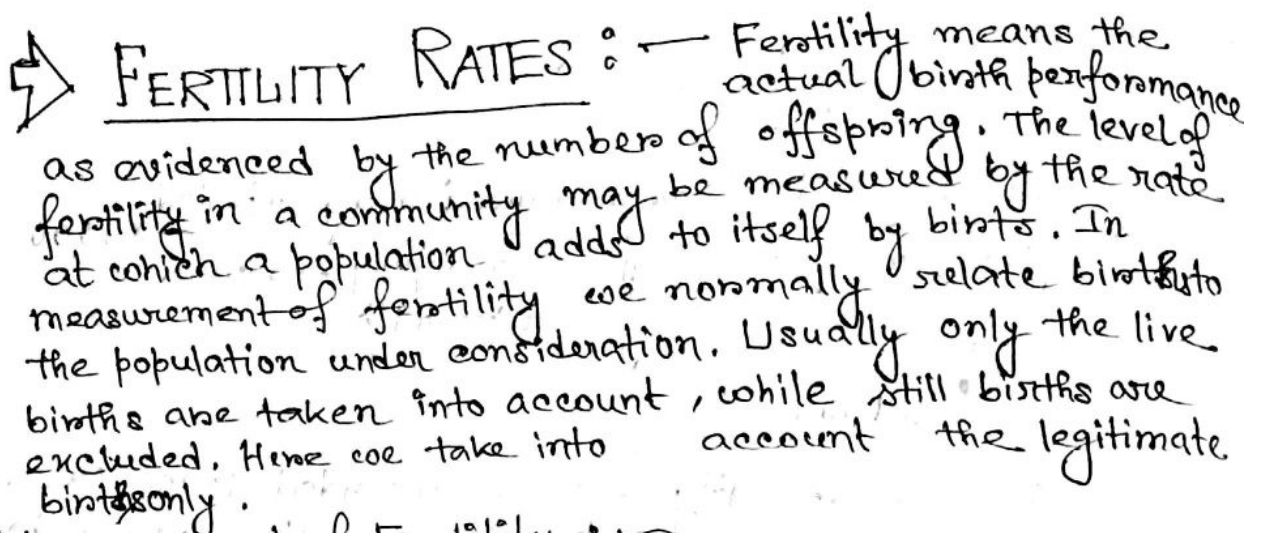 ⇒ FERTILITY RATES :— Fertility means the
actual birth performance
as evidenced by the number of offspring. The level of
fertility in a community may be measured by the rate
at which a population adds to itself by births. In
measurement of fertility we normally relate births to
the population under consideration. Usually only the live
births are taken into account, while still births are
excluded. Here we take into account the legitimate
births only.